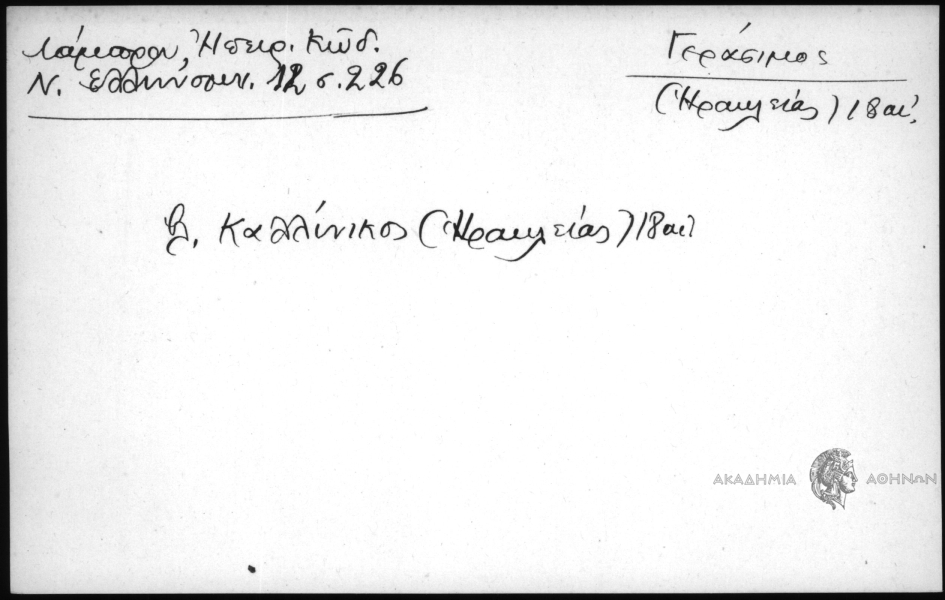 Λάμπρου, Ἠπειρ. Κώδ.
Ν. Ἑλληνομν. 12 σ. 226
Γεράσιμος
(Ἡρακλείας) 18 αἰ.
βλ. Καλλίνικος (Ἡρακλείας) 18 αἰ.
ΑΚΑΔΗΜΙΑ ΑΘΗΝΩΝ